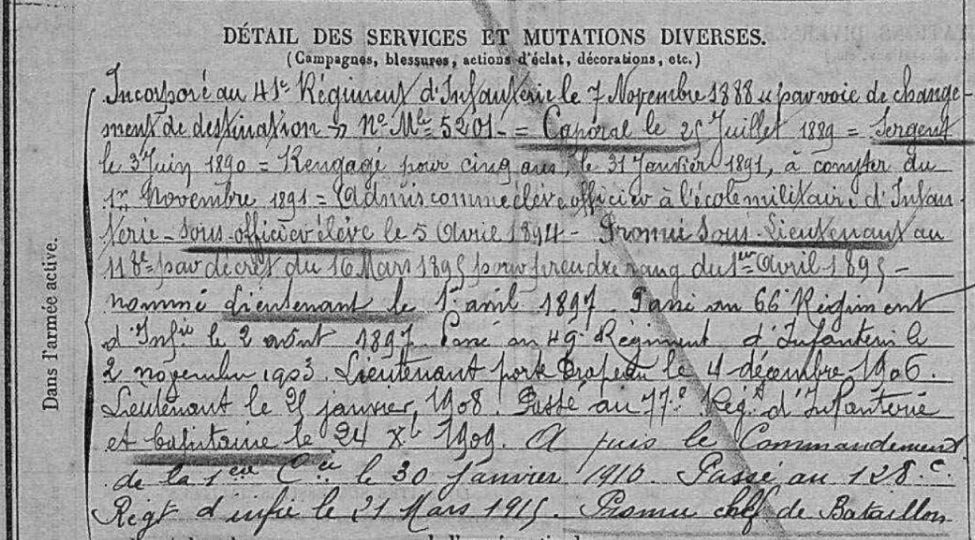 DÉTAIL DES SERVICES ET MUTATIONS DIVERSES.
(Campagnes, blessures, actions d'éclat, décorations, etc.)
Incorporé au 41e Régiment d'Infanterie le 7 Novembre 1888 par voie de change-
ment de destination No Mle 5201 = Caporal le 25 Juillet 1889 = Sergent
le 3 Juin 1890 = Rengagé pour cinq ans, le 31 Janvier 1891, à compter du
1er Novembre 1891 = Admis comme élève officier à l'école militaire d'Infan
terie - sous officier élève le 5 Avril 1894 - Promu Sous-Lieutenant au
118e par décret du 16 Mars 1895 pour prendre rang du 1er Avril 1895 -
nommé Lieutenant le 1er avril 1897. Passé au 66e Régiment
d'Infie le 2 août 1897. Passé au 49e Régiment d'Infanterie le
2 novembre 1903. Lieutenant porte Drapeau le 4 décembre 1906.
Lieutenant le 25 janvier, 1908. Passé au 77e Régt d'Infanterie
et Capitaine le 24 Xbre 1909. A pris le Commandement
de la 1ère Cie le 30 Janvier 1910. Passé au 128e
Régt d'infie le 21 Mars 1915. Promu chef de Bataillon
Dans l'armée active.